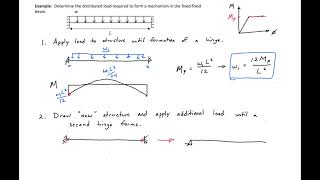 Example: Determine the distributed load required to form a mechanism in the fixed-fixed beam.
w
L
M
Mp
1. Apply load to structure until formation of a hinge.
w₁
M
w₁L²/24
w₁L²/12
Mp = w₁L²/12 → w₁ = 12Mp/L²
2. Draw "new" structure and apply additional load until a
second hinge forms.